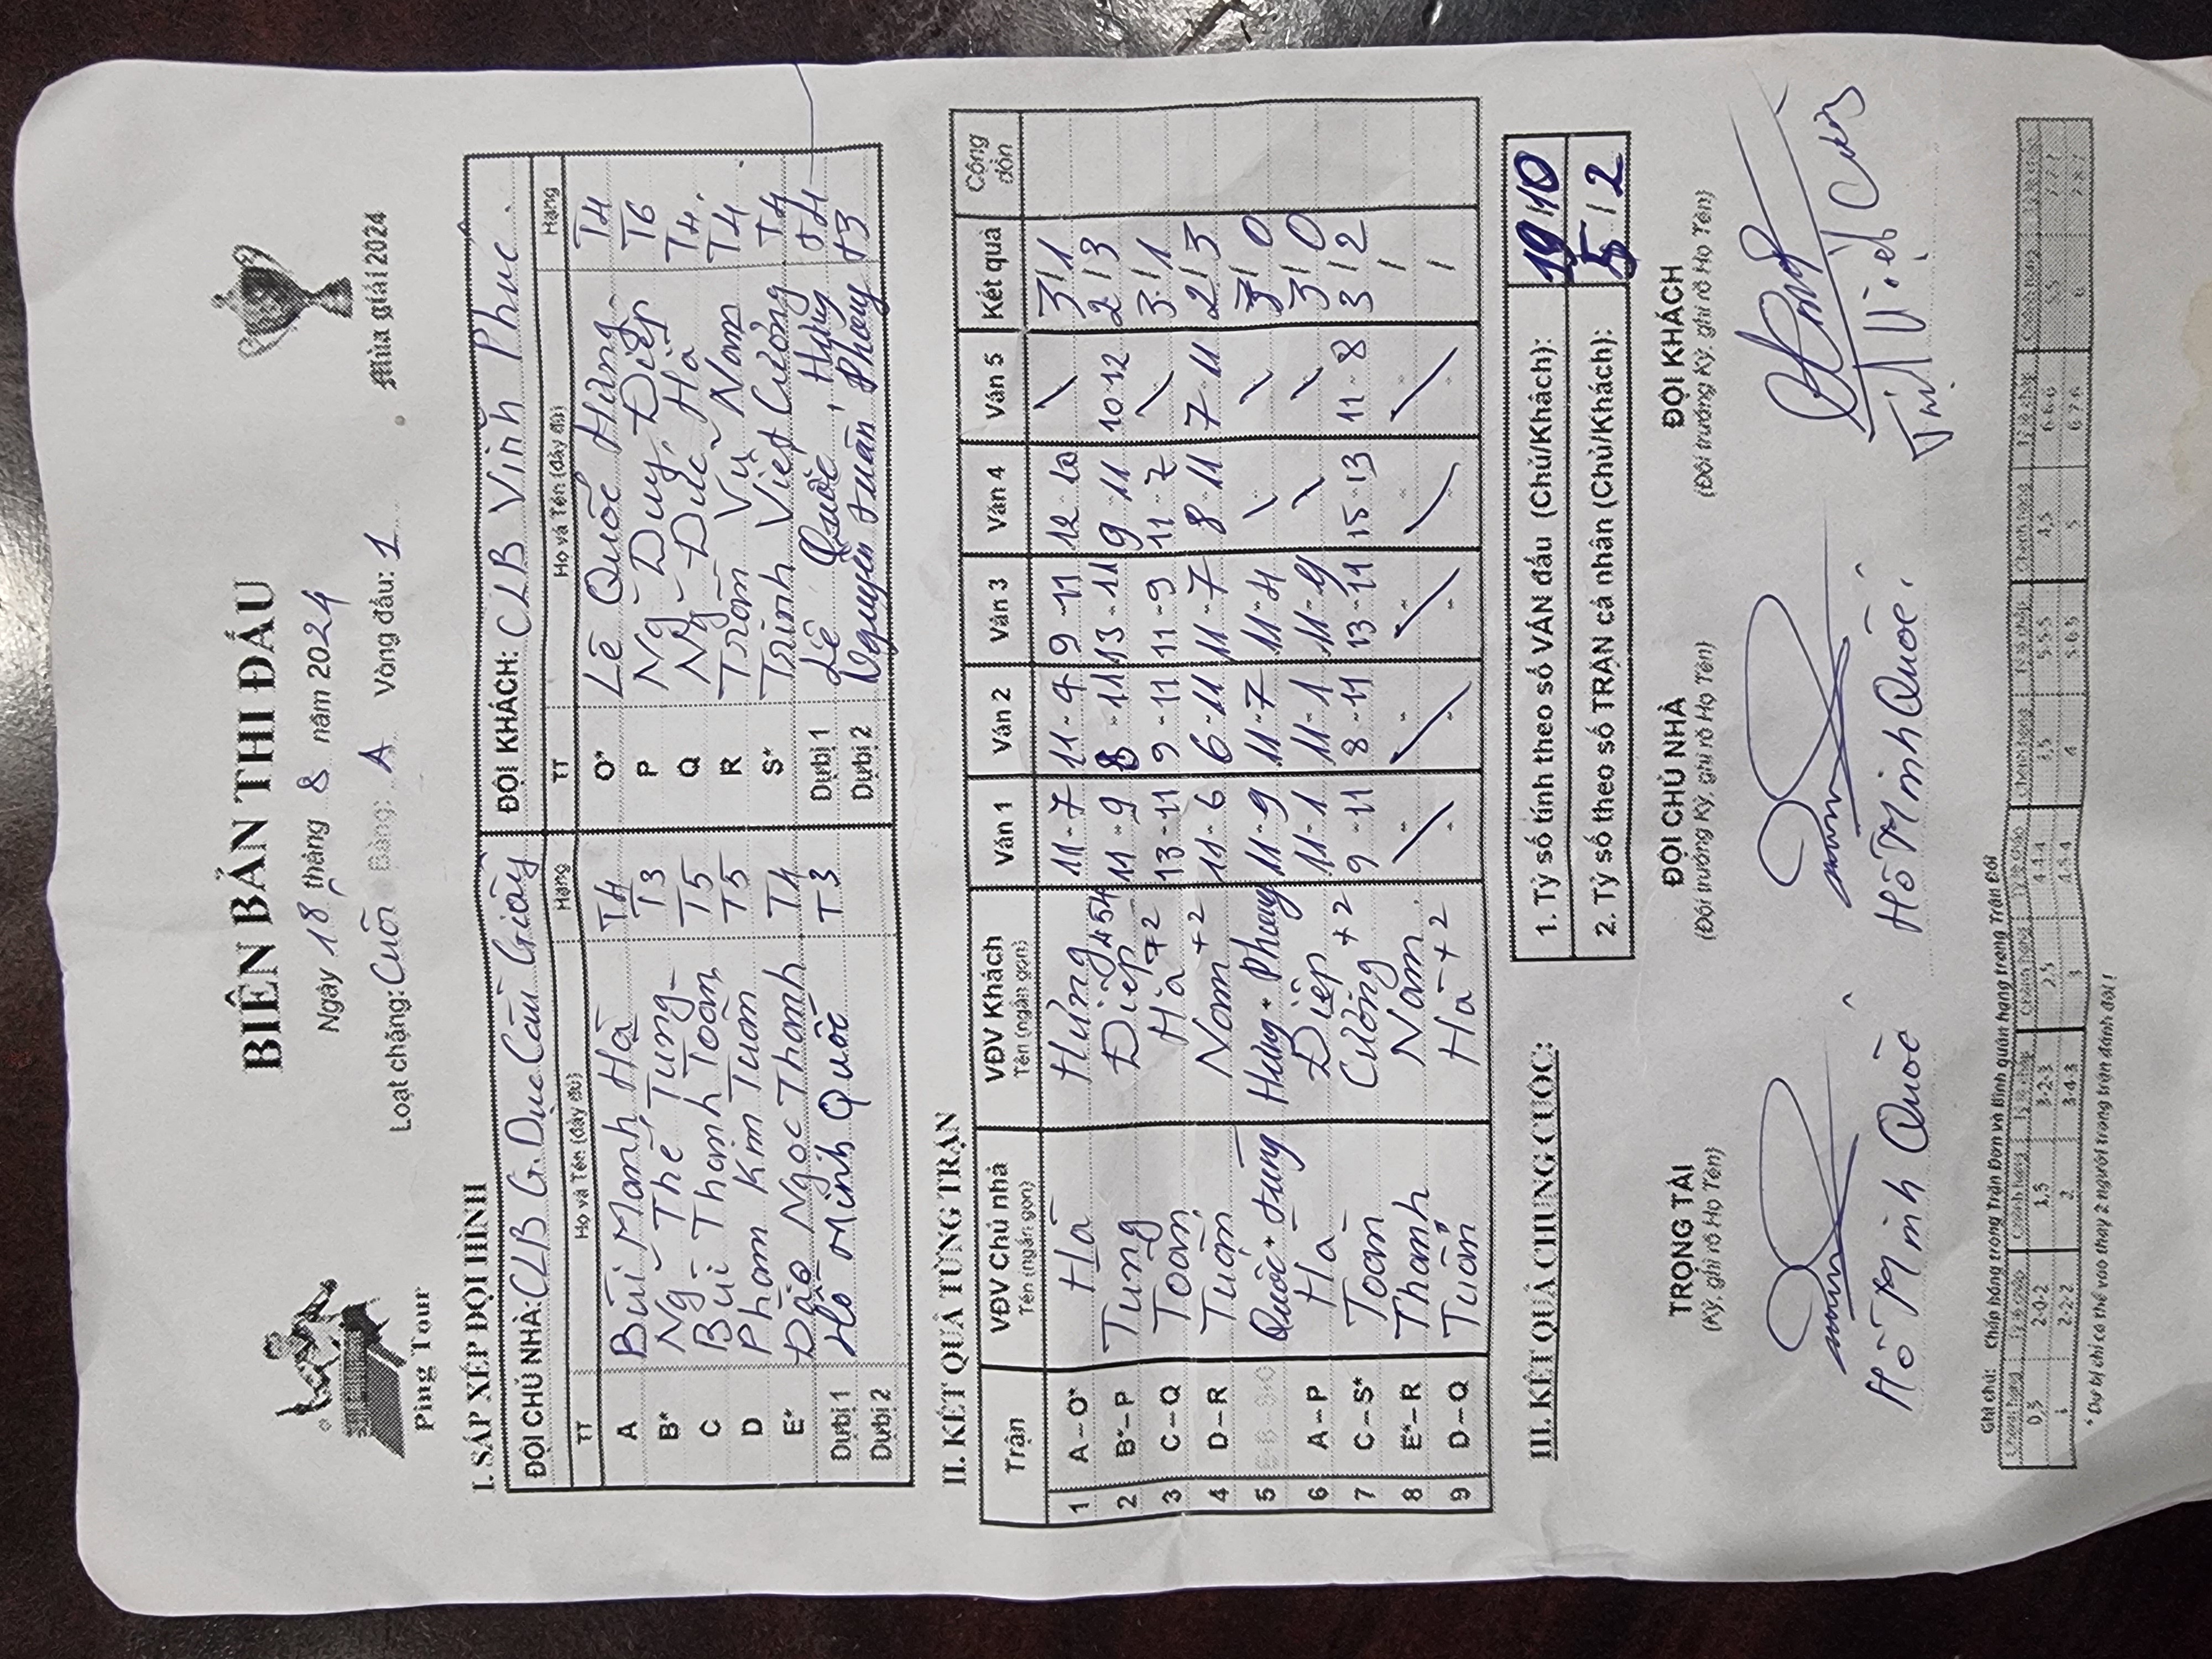 Ping Tour
BIÊN BẢN THI ĐẤU
Ngày 18 tháng 8 năm 2024
Loạt chặng: Cuối Bảng: A Vòng đấu: 1
Mùa giải 2024
I. SẮP XẾP ĐỘI HÌNH
ĐỘI CHỦ NHÀ: CLB G.Dục Cầu Giấy ĐỘI KHÁCH: CLB Vĩnh Phúc.
TT Họ và Tên (đầy đủ) Hạng TT Họ và Tên (đầy đủ) Hạng
A Bùi Mạnh Hà T4 O* Lê Quốc Hưng T4
B* Ng~ Thế Tùng T3 P Ng~ Duy Điệp T6
C Bùi Thanh Toàn T5 Q Ng~ Đức Hà T4.
D Phạm Kim Tuấn T5 R Trần Vũ Nam T4
E* Đào Ngọc Thanh T4 S* Trịnh Việt Cường T4
Dự bị 1 Hồ Minh Quốc T3 Dự bị 1 Lê Quốc Hưng T4
Dự bị 2 Dự bị 2 Nguyễn Tuấn Phương T3
II. KẾT QUẢ TỪNG TRẬN
Trận VĐV Chủ nhà VĐV Khách Ván 1 Ván 2 Ván 3 Ván 4 Ván 5 Kết quả Cộng dồn
Tên (ngắn gọn) Tên (ngắn gọn)
1 A – O* Hà Hưng 11-7 11-4 9-11 12-10 3/1
2 B* – P Tùng Điệp 11-9 8-11 13-11 9-11 10-12 2/3
3 C – Q Toàn Hà +2 13-11 9-11 11-9 11-7 3/1
4 D – R Tuấn Nam +2 11-6 6-11 11-7 8-11 7-11 2/3
5 Quốc + Tùng Hưng + Phương 11-9 11-7 11-4 3/0
6 A – P Hà Điệp 11-1 11-1 11-9 3/0
7 C – S* Toàn Cường +2 9-11 8-11 13-11 15-13 11-8 3/2
8 E* – R Thanh Nam /
9 D – Q Tuấn Hà +2 /
III. KẾT QUẢ CHUNG CUỘC:
1. Tỷ số tính theo số VÁN đấu (Chủ/Khách): 19/10
2. Tỷ số theo số TRẬN cá nhân (Chủ/Khách): 5/2
TRỌNG TÀI ĐỘI CHỦ NHÀ ĐỘI KHÁCH
(Ký, ghi rõ Họ Tên) (Đội trưởng Ký, ghi rõ Họ Tên) (Đội trưởng Ký, ghi rõ Họ Tên)
Hồ Minh Quốc Hồ Minh Quốc Trịnh Việt Cường
Ghi chú: Chấp bóng trong Trận Đơn và Bình quân hạng trong Trận Đôi
0,5 2-0-2 1,5 3-2-3 2,5 4-4-4 3,5 5-5-5 4,5 6-6-6 5,5
1 2-2-2 2 3-4-3 3 4-5-4 4 5-6-5 5 6-7-6 6
* Dự bị chỉ có thể vào thay 2 người trong trận đánh đôi !